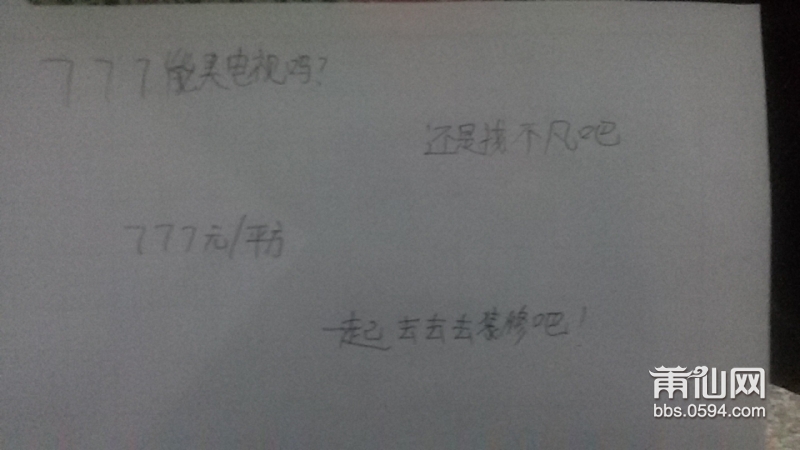 777能买电视吗?
还是找不凡吧
777元/平方
一起去去去装修吧!
莆仙网
bbs.0594.com